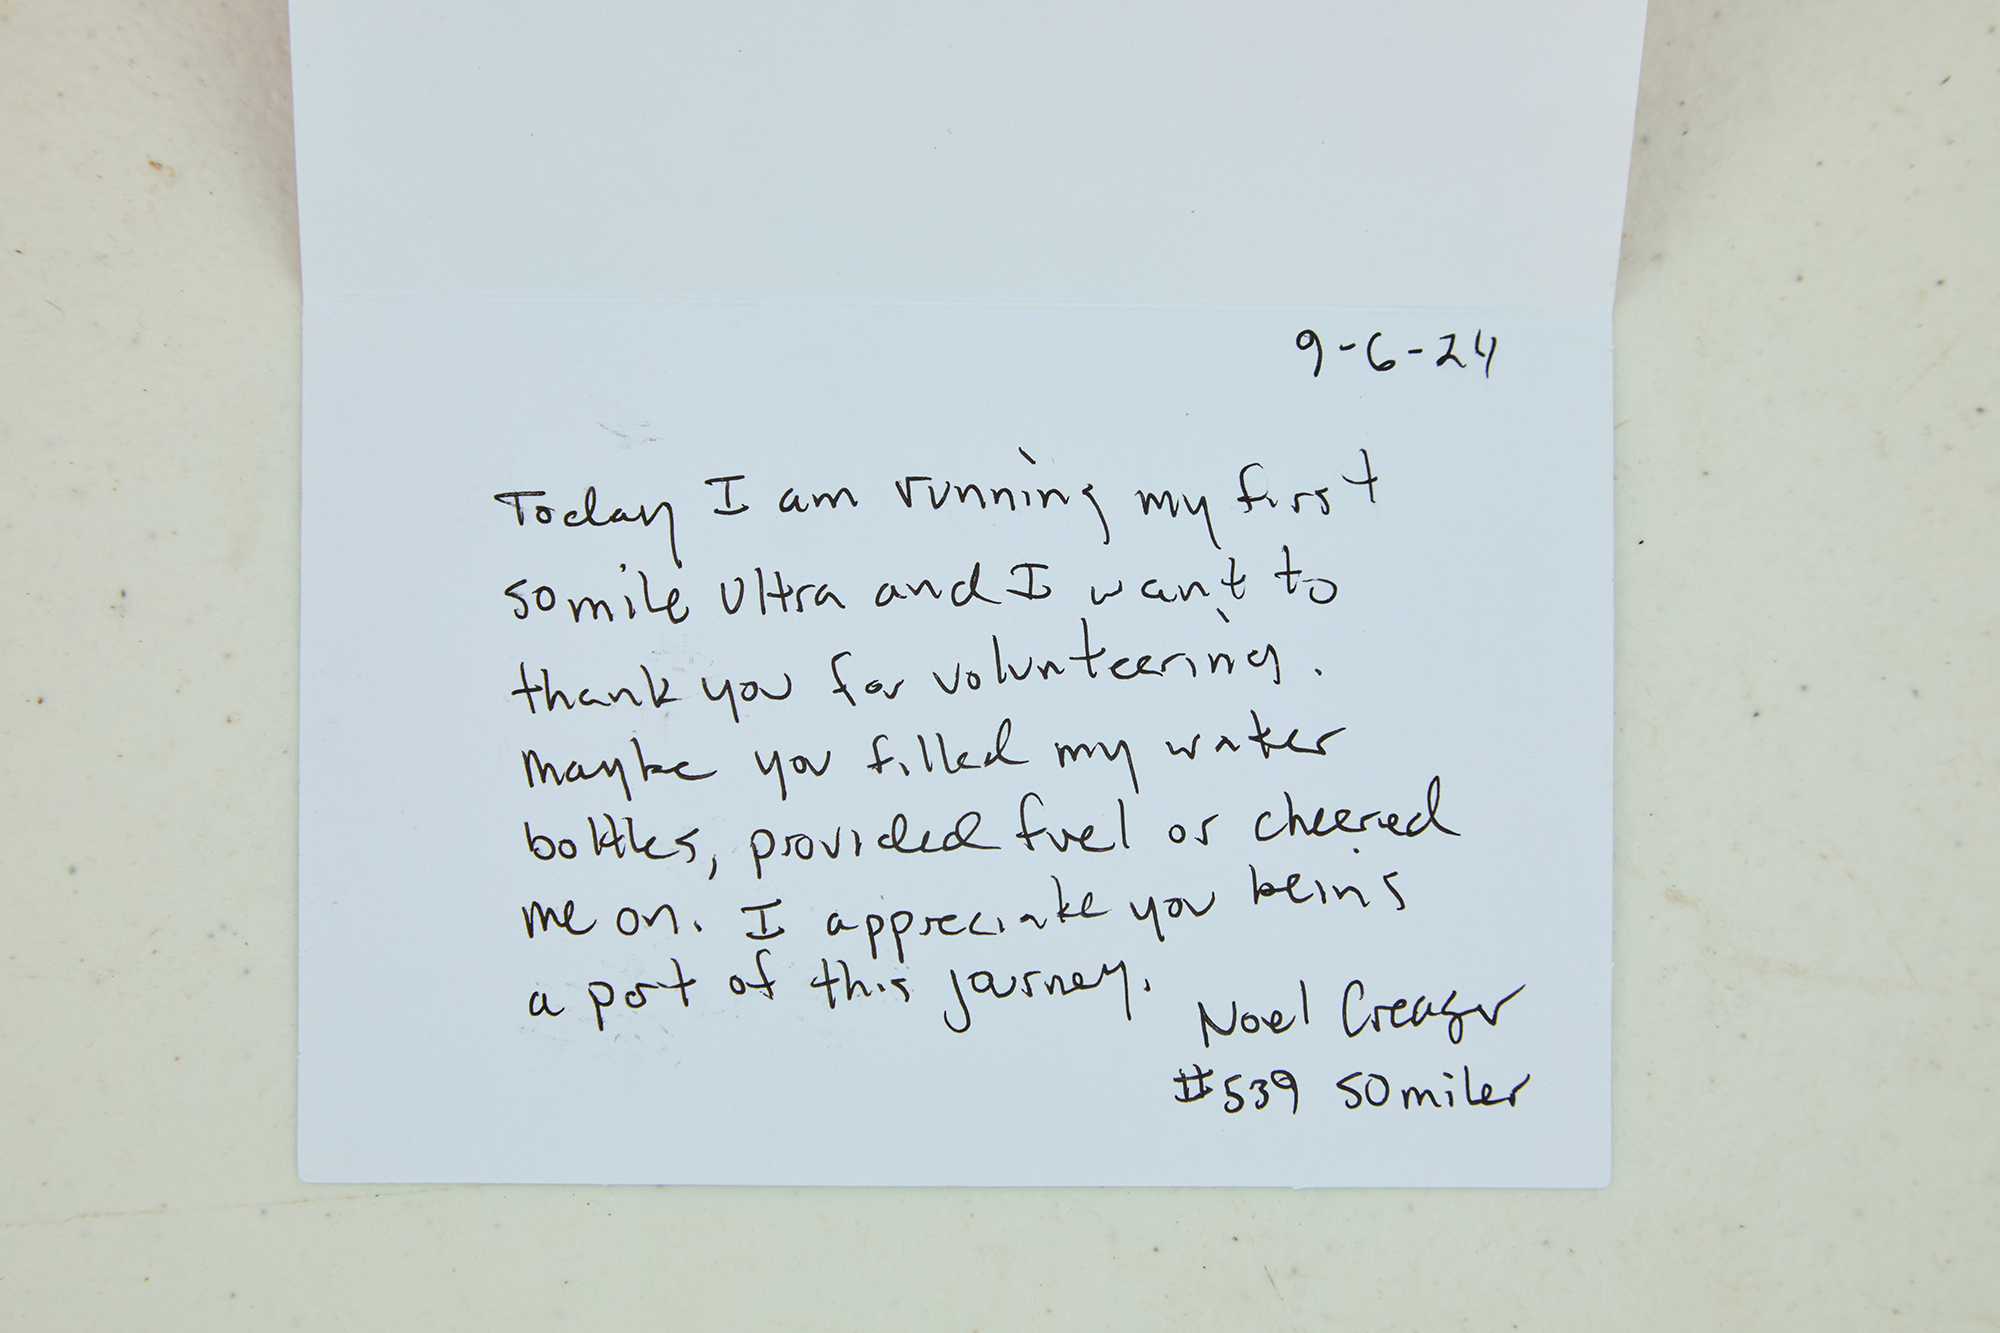 9-6-24
Today I am running my first
50 mile Ultra and I want to
thank you for volunteering.
Maybe you filled my water
bottles, provided fuel or cheered
me on. I appreciate you being
a part of this journey.
Noel Creager
#539 50 miler